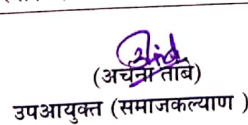 (अर्चना तांबे)
उपआयुक्त (समाजकल्याण )